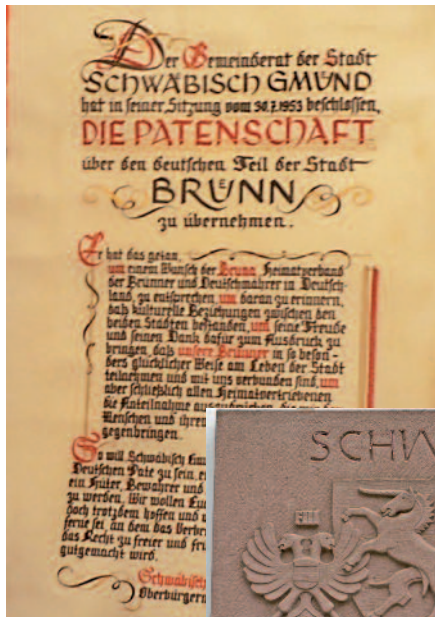 Der Gemeinderat der Stadt
SCHWÄBISCH GMÜND
hat in seiner Sitzung vom 30.7.1953 beschlossen,
DIE PATENSCHAFT
über den deutschen Teil der Stadt
BRÜNN
zu übernehmen.
Er hat das getan,
um einem Wunsch der Bruna, Heimatverband
der Brünner und Deutschmährer in Deutsch-
land, zu entsprechen, um daran zu erinnern,
daß kulturelle Beziehungen zwischen den
beiden Städten bestanden, und seine Freude
und seinen Dank dafür zum Ausdruck zu
bringen, daß unsere Brünner in so beson-
ders glücklicher Weise am Leben der Stadt
teilnehmen und mit uns verbunden sind, um
aber schließlich allen Heimatvertriebenen
die Anteilnahme
Menschen und ihre
gegenbringen.
So will Schwäbisch
Deutschen Pate zu sein,
ein Hüter, Bewahrer und
zu werden. Wir wollen
doch trotzdem hoffen und
ferne sei, an dem das
das Recht zu freier und
gutgemacht wird.
Schwäbisch
Oberbürgerm
SCHW